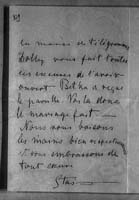 en marge de télégramme
Dolly vous fait toutes
les excuses de l'avoir
ouvert Betka a reçu
le paquet
le mariage fait —
Nous vous baisons
les mains bien respect
et vous embrassons de
tout cœur
Stas